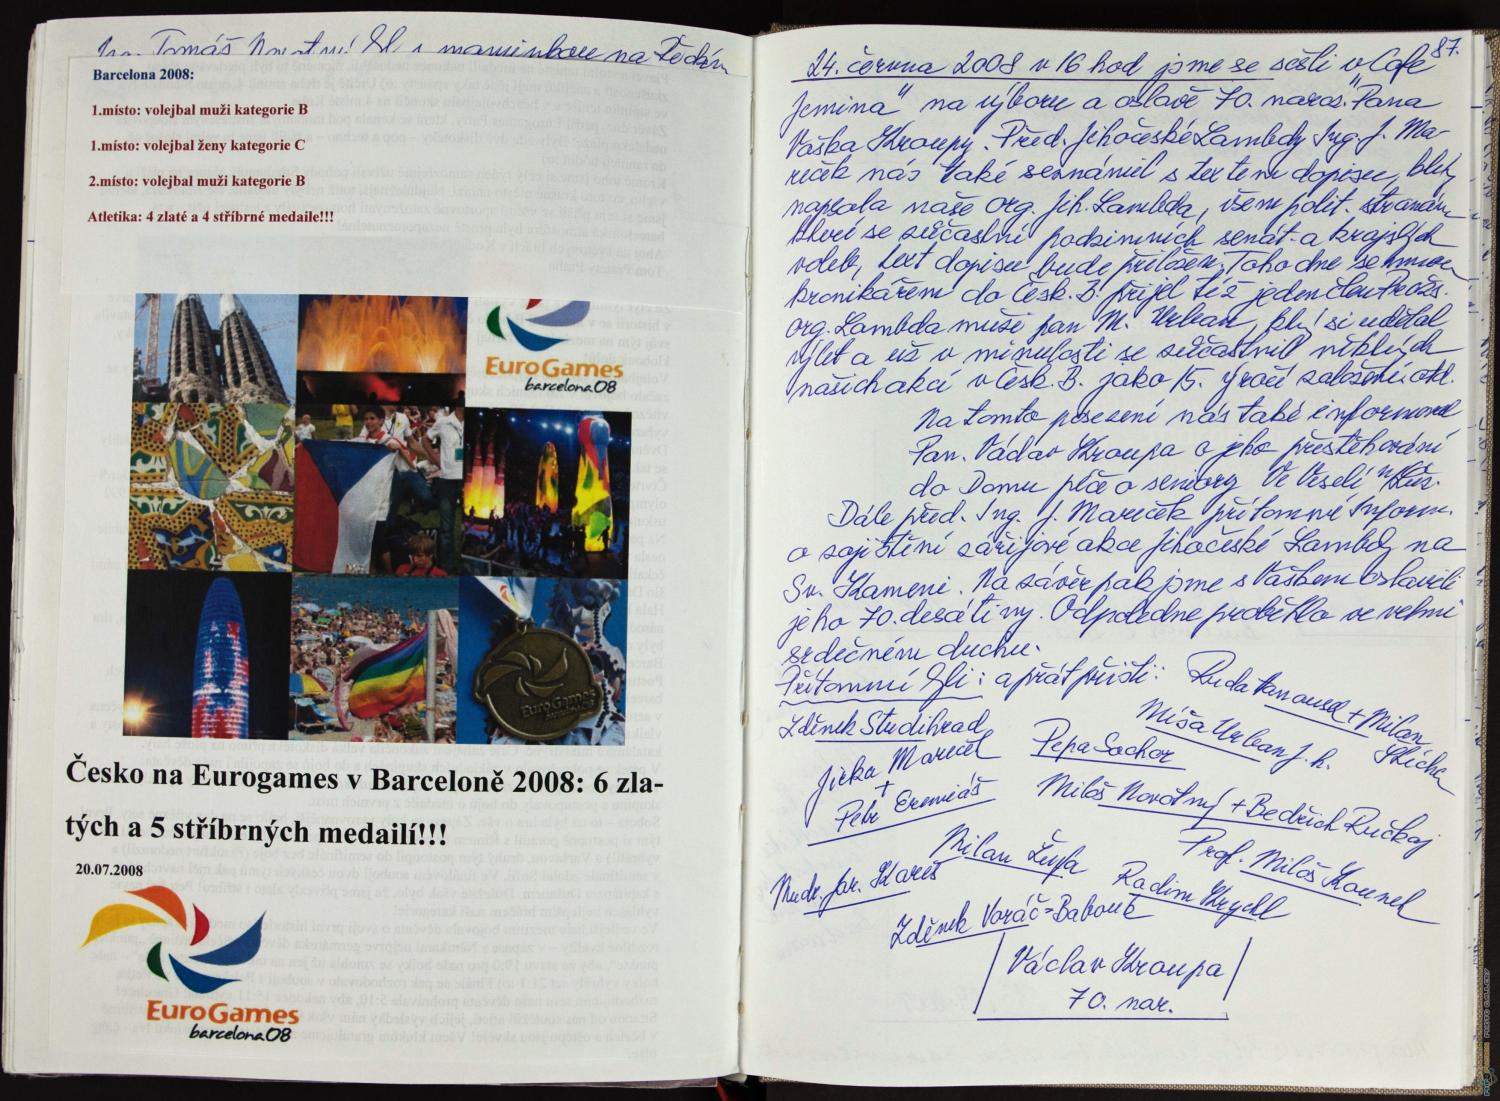 Ing. Tomáš Novotný Gl. s maminkou na
Barcelona 2008:
1.místo: volejbal muži kategorie B
1.místo: volejbal ženy kategorie C
2.místo: volejbal muži kategorie B
Atletika: 4 zlaté a 4 stříbrné medaile!!!
EuroGames
barcelona08
EuroGames
Česko na Eurogames v Barceloně 2008: 6 zla-
tých a 5 stříbrných medailí!!!
20.07.2008
EuroGames
barcelona08
87.
24. června 2008 v 16 hod jsme se sešli v Cafe
Jemina" na výboru a oslavě 70. naroz. Pana
Vaška Kroupy. Před. Jihočeské Lambdy Ing. J. Ma-
reček nás také seznámil s textem dopisu, který
napsala naše org. Jih. Lambda, všem polit. stranám
které se zúčastní podzimních senát. a krajských
voleb, text dopisu bude přiložen. Toho dne se mnou
kronikářem do Česk. B. přijel též jeden člen Praž.
org. Lambda muži pan M. Urban, který si udělal
výlet a už v minulosti se zúčastnil některých
našich akcí v Česk. B. jako 15. výročí založení
Na tomto posezení nás také informoval
Pan. Václav Kroupa o jeho přestěhování
do Domu péče o seniory Ve Veselí n/Luž.
Dále před. Ing. J. Mareček přítomné inform.
o zajištění zářijové akce Jihočeské Lambdy na
Sv. Kameni. Na závěr pak jsme s Vaškem oslavili
jeho 70. desátiny. Odpoledne proběhlo ve velmi
srdečném duchu.
Přítomni Gli: a přát přišli:
Ruda + Milan
Zdeněk Studihrad
Míša Urban J. h.
Jirka Mareček
+
Petr Eremiáš
Pepa Sochor
Miloš Novotný + Bedřich Ručkaj
Milan
Prof. Miloš
Mudr. Jar. Kareš
Radim Krychl
Zdeněk Voráč =
Václav Kroupa
70. nar.